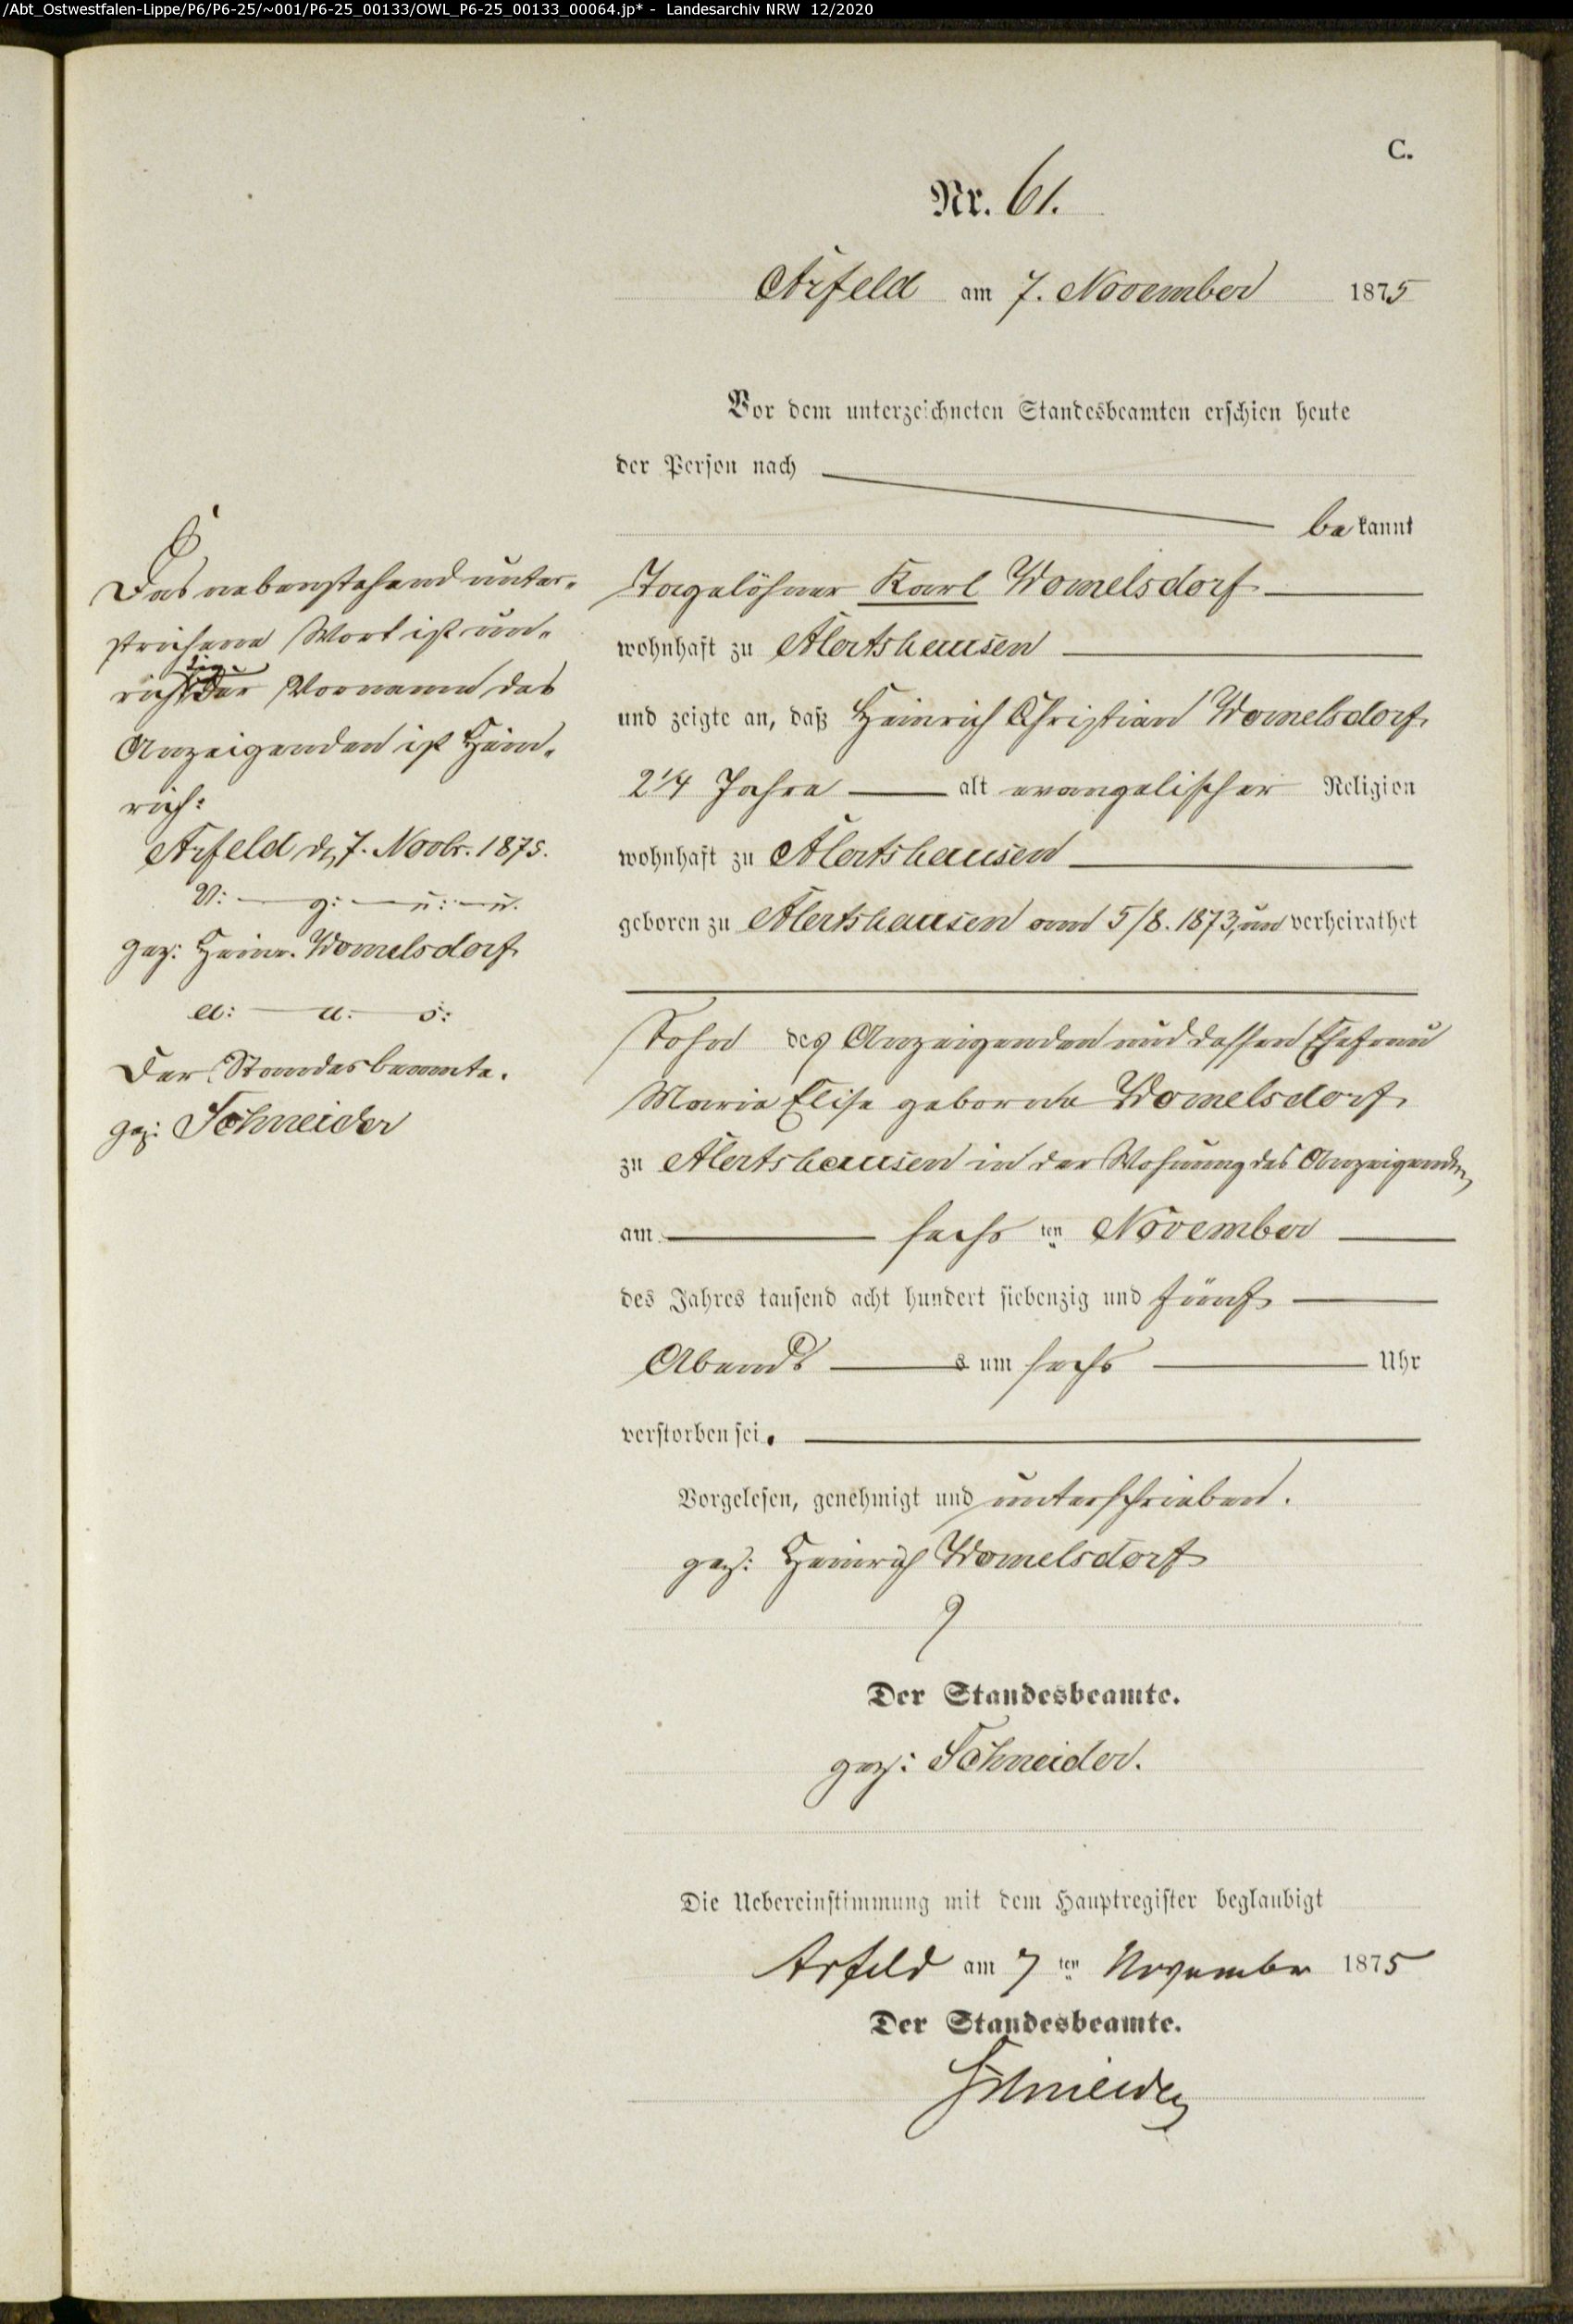 /Abt_Ostwestfalen-Lippe/P6/P6-25/~001/P6-25_00133/OWL_P6-25_00133_00064.jp* - Landesarchiv NRW 12/2020
C.
Nr. 61.
Arfeld am 7. November 1875
Vor dem unterzeichneten Standesbeamten erschien heute
der Person nach
bekannt
Tagelöhner Karl Womelsdorf
wohnhaft zu Alertshausen
und zeigte an, daß Heinrich Christian Womelsdorf
2 1/4 Jahre alt evangelischer Religion
wohnhaft zu Alertshausen
geboren zu Alertshausen am 5/8. 1873, unverheirathet
Sohn des Anzeigenden und dessen Ehefrau
Maria Elise geborene Womelsdorf
zu Alertshausen in der Wohnung des Anzeigenden
am sechsten November
des Jahres tausend acht hundert siebenzig und fünf
Abends um sechs Uhr
verstorben sei.
Vorgelesen, genehmigt und unterschrieben.
gez: Heinrich Womelsdorf
Der Standesbeamte.
gez: Schneider.
Die Uebereinstimmung mit dem Hauptregister beglaubigt
Arfeld am 7ten November 1875
Der Standesbeamte.
Schneider
Das nebenstehend unter-
strichene Wort ist un-
richtig der Vorname des
Anzeigenden ist Hein-
rich:
Arfeld d. 7. Novbr. 1875.
V: g: u: u.
gez: Heinr. Womelsdorf
a: u: s:
Der Standesbeamte.
gez: Schneider